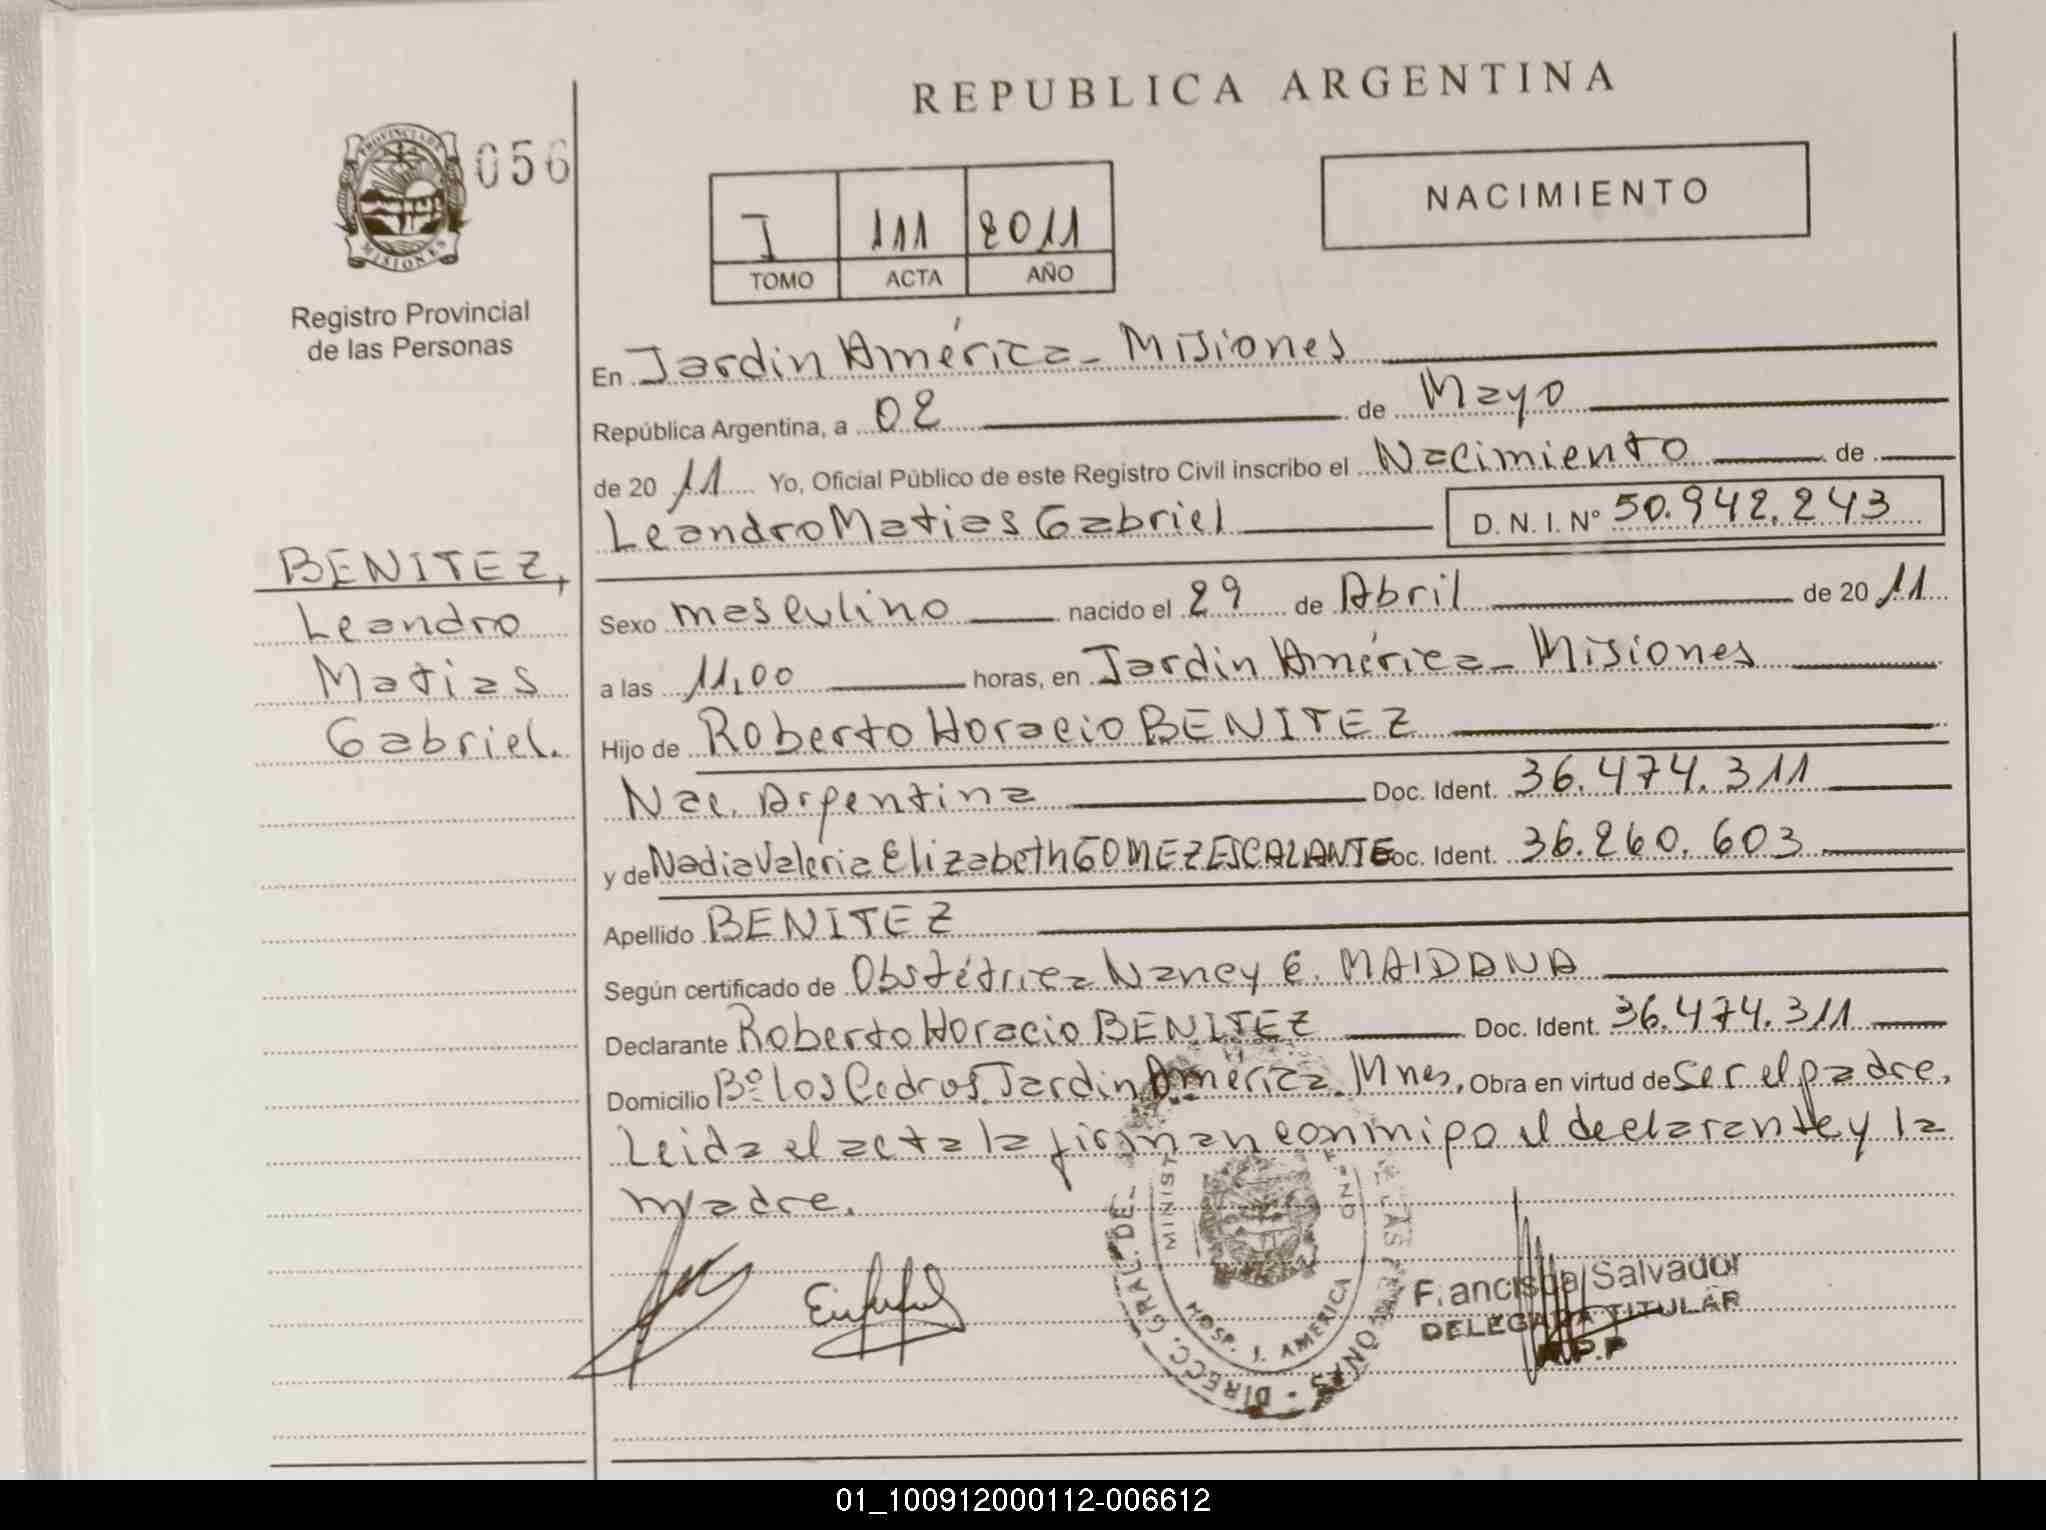 REPUBLICA ARGENTINA
PROVINCIA DE
MISIONES
056
Registro Provincial
de las Personas
I 111 2011
TOMO ACTA AÑO
NACIMIENTO
En Jardin América - Misiones
República Argentina, a 02 de Mayo
de 20 11 Yo, Oficial Público de este Registro Civil inscribo el Nacimiento de
Leandro Matias Gabriel D. N. I. Nº 50.942.243
BENITEZ,
Leandro
Matias
Gabriel.
Sexo masculino nacido el 29 de Abril de 20 11
a las 11,00 horas, en Jardin América - Misiones
Hijo de Roberto Horacio BENITEZ
Nac. Argentina Doc. Ident. 36.474.311
y de Nadia Valeria Elizabeth GOMEZ ESCALANTE Doc. Ident. 36.260.603
Apellido BENITEZ
Según certificado de Obstétrica Nancy E. MAIDANA
Declarante Roberto Horacio BENITEZ Doc. Ident. 36.474.311
Domicilio Bº Los Cedros Jardin América Mnes, Obra en virtud de ser el padre,
Leida el acta la firman conmigo el declarante y la
madre.
DIRECC. GRAL. DE
MINIST
HOSP. J. AMERICA
Francisca Salvador
DELEGADA TITULAR
R.P.P
01_100912000112-006612